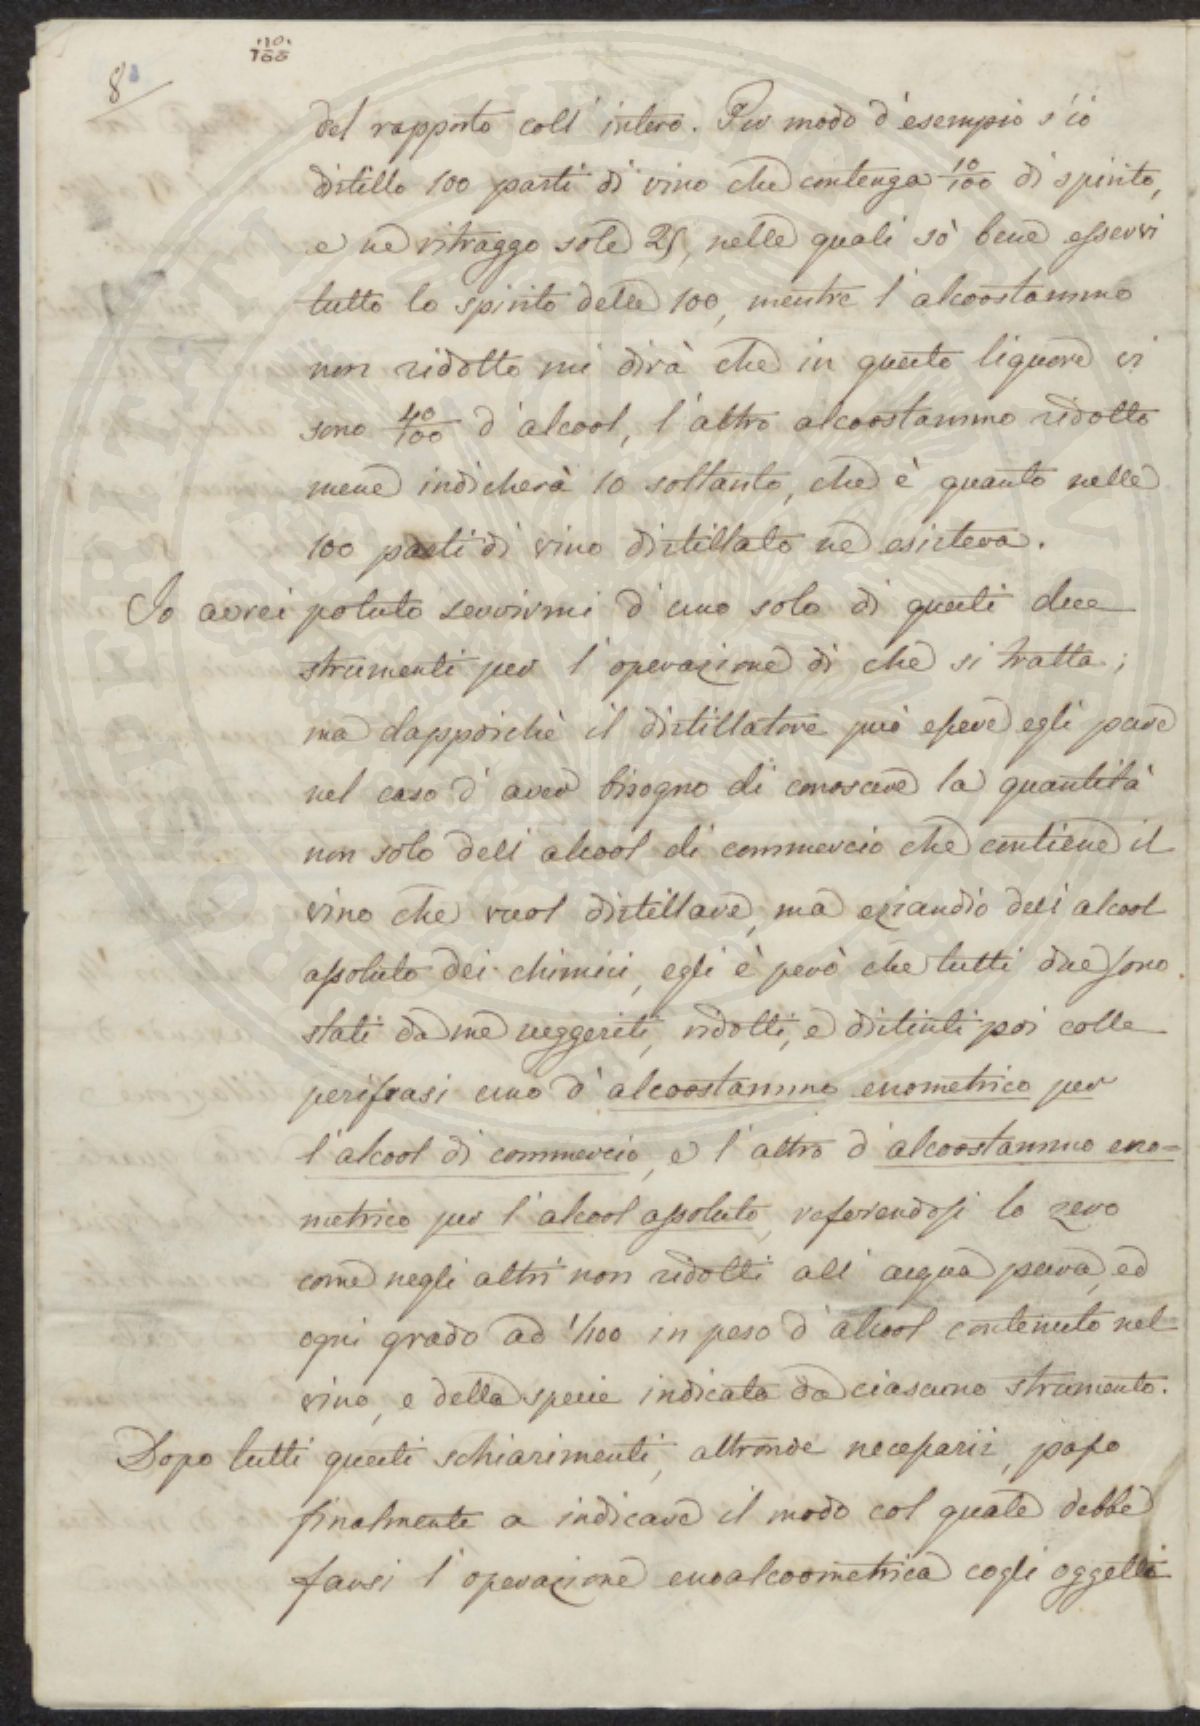 10/100
8
del rapporto coll' intero. Per modo d'esempio s'io
distillo 100 parti di vino che contenga 10/100 di spirito,
e ne ritraggo sole 25, nelle quali sò bene esservi
tutto lo spirito delle 100, mentre l'alcoostammo
non ridotto mi dirà che in questo liquore vi
sono 40/100 d'alcool, l'altro alcoostammo ridotto
mene indicherà 10 soltanto, che è quanto nelle
100 parti di vino distillato ne esisteva.
Io avrei potuto servirmi d'uno solo di questi due
strumenti per l'operazione di che si tratta;
ma dappoichè il distillatore può essere egli pure
nel caso d'aver bisogno di conoscere la quantità
non solo dell'alcool di commercio che contiene il
vino che vuol distillare, ma eziandio dell'alcool
assoluto dei chimici, egli è però che tutti due sono
stati da me suggeriti, ridotti, e distinti poi colle
perifrasi uno d'alcoostammo enometrico per
l'alcool di commercio, e l'altro d'alcoostammo eno=
metrico per l'alcool assoluto, referendosi lo zero
come negli altri non ridotti all'acqua pura, ed
ogni grado ad 1/100 in peso d'alcool contenuto nel
vino, e della specie indicata da ciascuno strumento.
Dopo tutti questi schiarimenti, altronde necessarii, passo
finalmente a indicare il modo col quale debbe
farsi l'operazione enoalcoometrica cogli oggetti